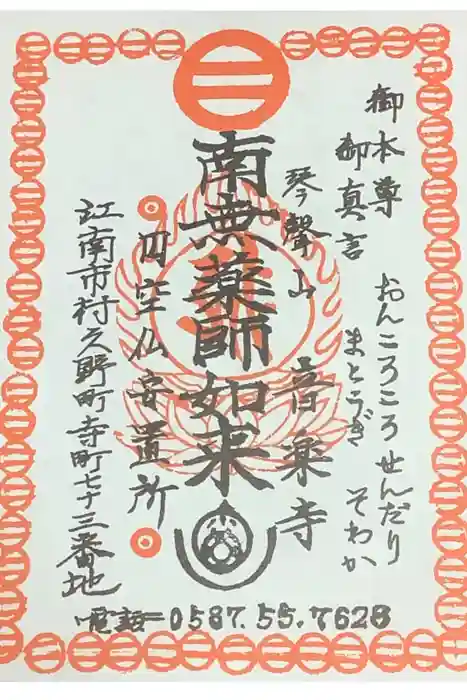 御本尊
御真言
おんころころ せんだり
まとうぎ そわか
琴聲山 音楽寺
南無薬師如来
円空仏安置所
江南市村久野町寺町七十三番地
電話=0587.55.7628